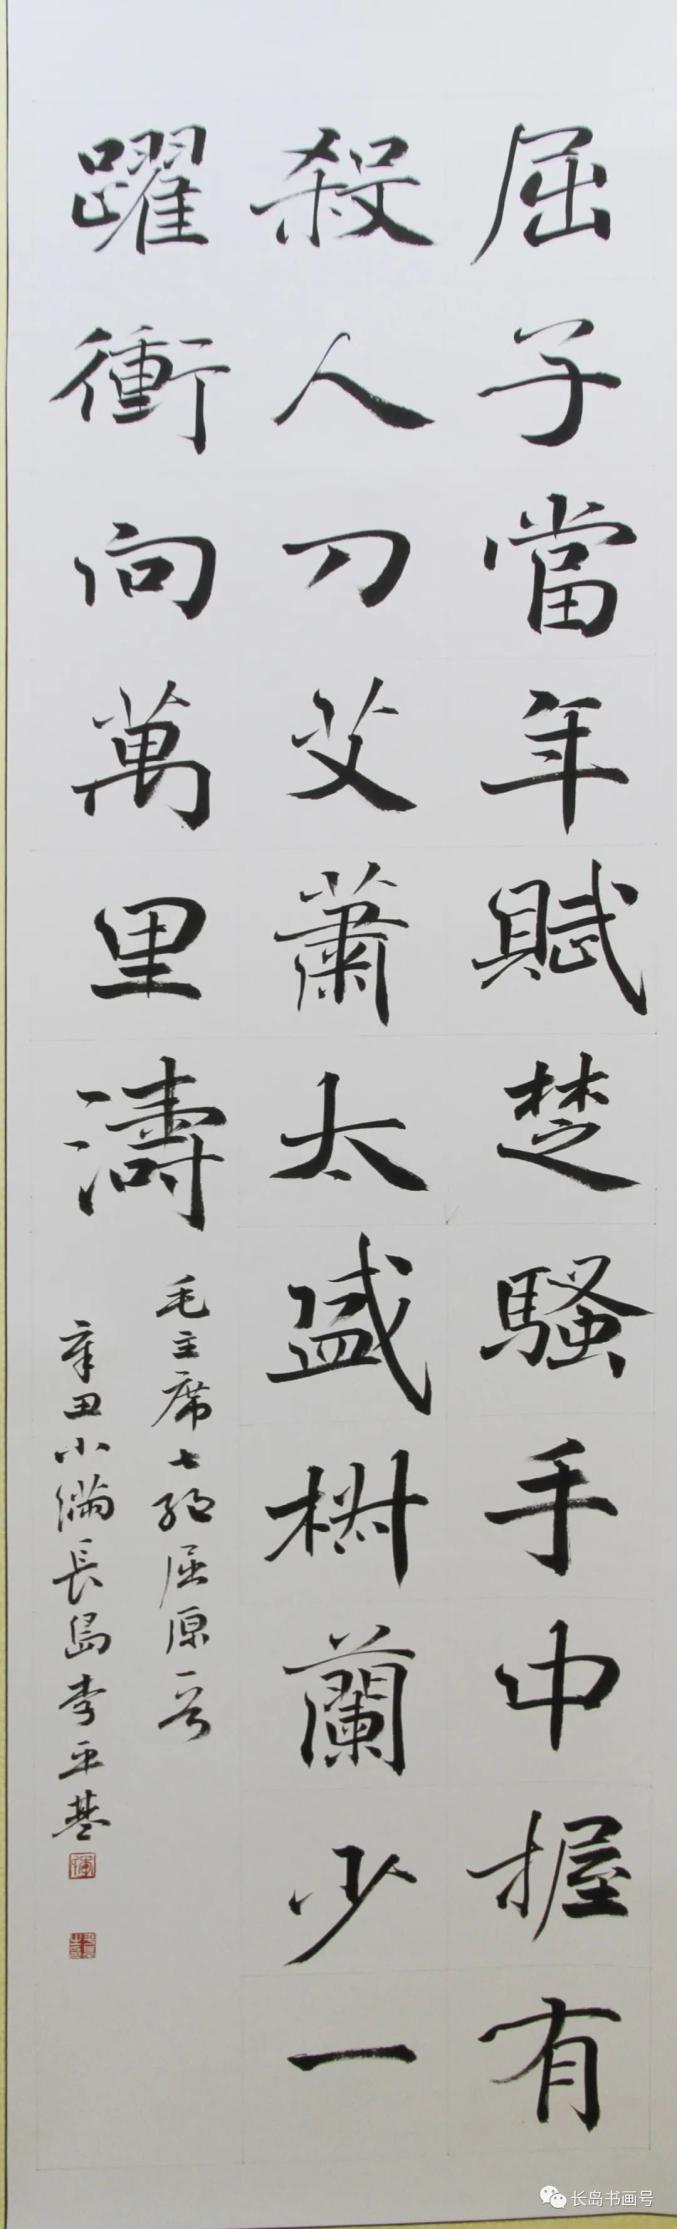 屈子當年賦楚騷手中握有
殺人刀艾蕭太盛椒蘭少一
躍衝向萬里濤
毛主席七絕屈原一首
辛丑小滿長島李基
长岛书画号